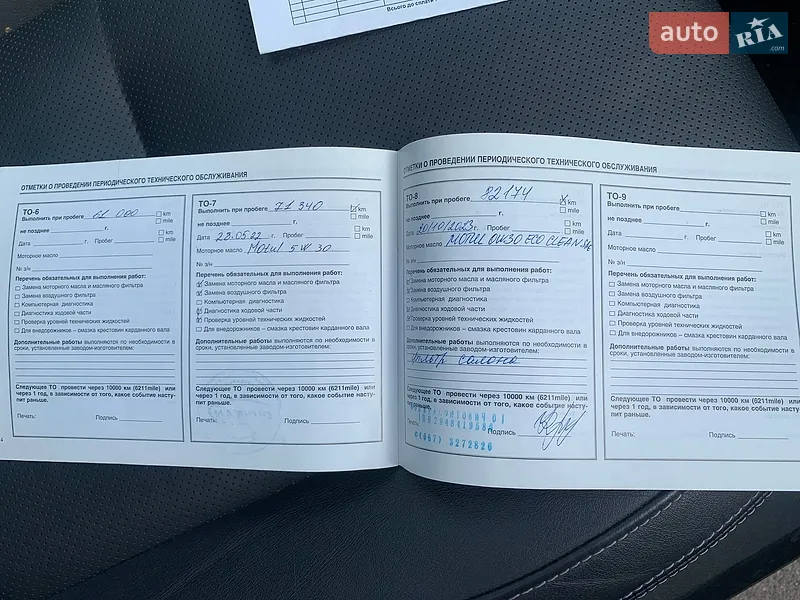 Всього до сплати
auto RIA .com
ОТМЕТКИ О ПРОВЕДЕНИИ ПЕРИОДИЧЕСКОГО ТЕХНИЧЕСКОГО ОБСЛУЖИВАНИЯ
ТО-6
Выполнить при пробеге 61 000 km
mile
не позднее г.
Дата Пробег km
mile
Моторное масло
№ з/н
Перечень обязательных для выполнения работ:
Замена моторного масла и масляного фильтра
Замена воздушного фильтра
Компьютерная диагностика
Диагностика ходовой части
Проверка уровней технических жидкостей
Для внедорожников – смазка крестовин карданного вала
Дополнительные работы выполняются по необходимости в
сроки, установленные заводом-изготовителем:
Следующее ТО провести через 10000 км (6211mile) или
через 1 год, в зависимости от того, какое событие насту-
пит раньше.
Печать: Подпись
ТО-7
Выполнить при пробеге 71 340 km
mile
не позднее г.
Дата 28.05.22 г. Пробег km
mile
Моторное масло Motul 5W30
№ з/н
Перечень обязательных для выполнения работ:
Замена моторного масла и масляного фильтра
Замена воздушного фильтра
Компьютерная диагностика
Диагностика ходовой части
Проверка уровней технических жидкостей
Для внедорожников – смазка крестовин карданного вала
Дополнительные работы выполняются по необходимости в
сроки, установленные заводом-изготовителем:
Следующее ТО провести через 10000 км (6211mile) или
через 1 год, в зависимости от того, какое событие насту-
пит раньше.
Печать: Подпись
ОТМЕТКИ О ПРОВЕДЕНИИ ПЕРИОДИЧЕСКОГО ТЕХНИЧЕСКОГО ОБСЛУЖИВАНИЯ
ТО-8
Выполнить при пробеге 82174 km
mile
не позднее г.
30/10/2023 г. Пробег km
mile
Моторное масло MOTUL 0W30 ECO CLEAN
№ з/н
Перечень обязательных для выполнения работ:
Замена моторного масла и масляного фильтра
Замена воздушного фильтра
Компьютерная диагностика
Диагностика ходовой части
Проверка уровней технических жидкостей
Для внедорожников – смазка крестовин карданного вала
Дополнительные работы выполняются по необходимости в
сроки, установленные заводом-изготовителем:
фильтр салона
Следующее ТО провести через 10000 км (6211mile) или
через 1 год, в зависимости от того, какое событие насту-
пит раньше.
Подпись
(067) 3272826
ТО-9
Выполнить при пробеге km
mile
не позднее г.
Дата г. Пробег km
mile
Моторное масло
№ з/н
Перечень обязательных для выполнения работ:
Замена моторного масла и масляного фильтра
Замена воздушного фильтра
Компьютерная диагностика
Диагностика ходовой части
Проверка уровней технических жидкостей
Для внедорожников – смазка крестовин карданного вала
Дополнительные работы выполняются по необходимости в
сроки, установленные заводом-изготовителем:
Следующее ТО провести через 10000 км (6211mile) или
через 1 год, в зависимости от того, какое событие насту-
пит раньше.
Печать: Подпись